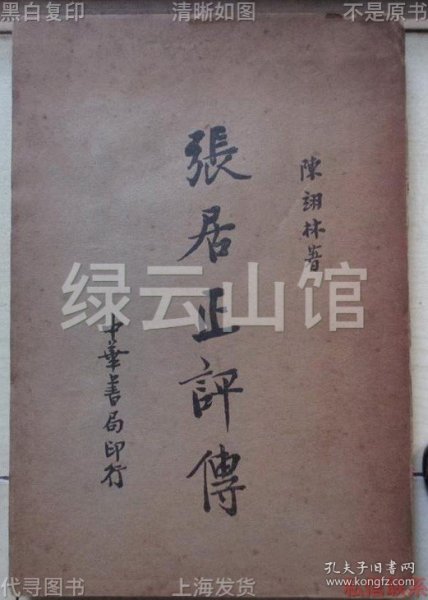 黑白复印
清晰如图
不是原书
陳翊林著
張居正評傳
中華書局印行
绿云山馆
孔夫子旧书网
代寻图书
上海发货